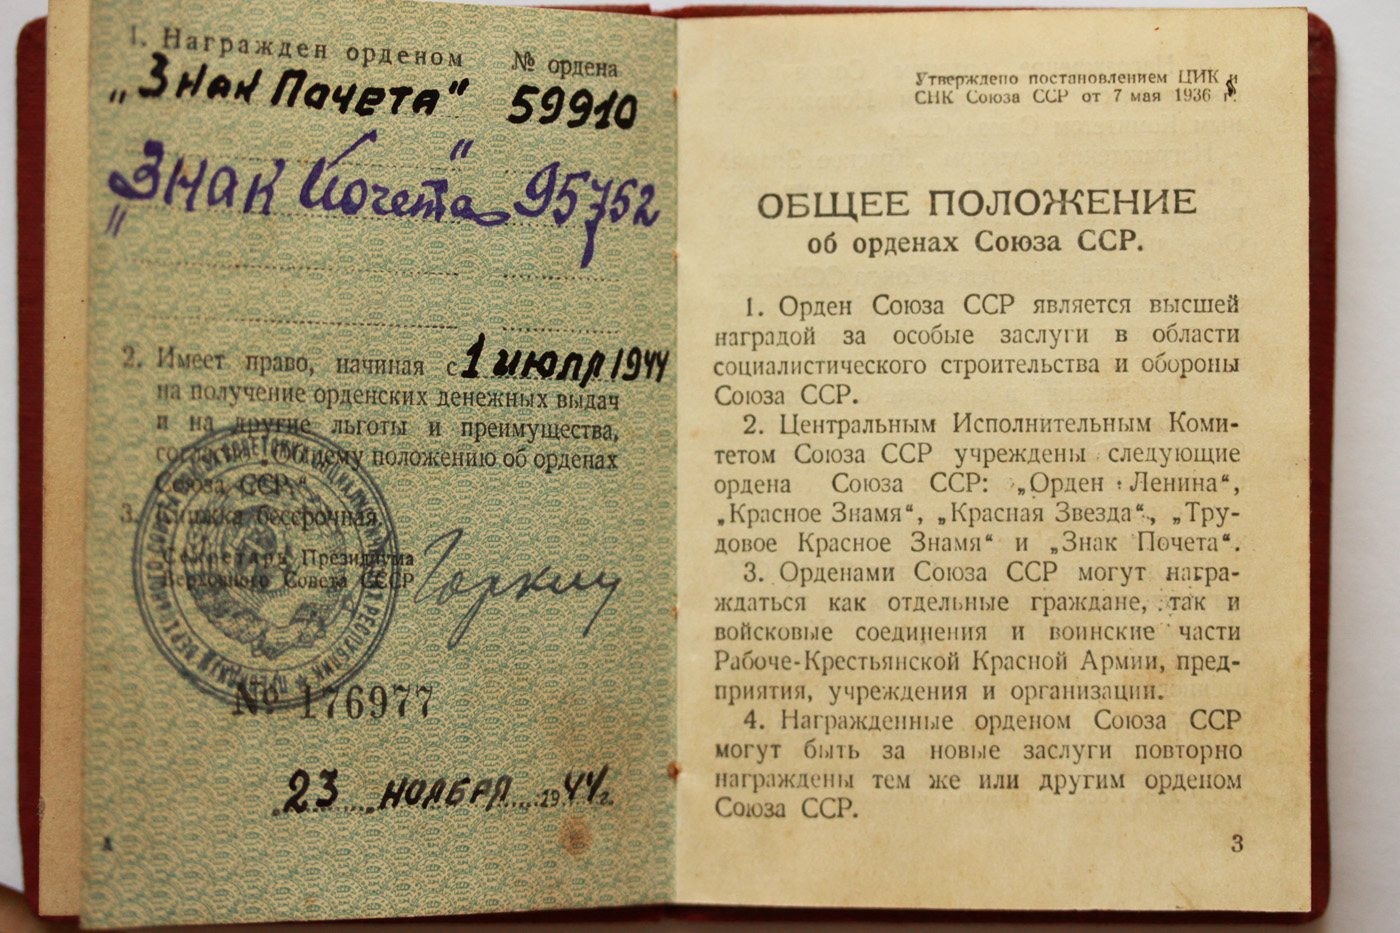 1. Награжден орденом № ордена
„Знак Почета“ 59910
„Знак Почета“ 95752
2. Имеет право, начиная с 1 июля 1944
на получение орденских денежных выдач
и на другие льготы и преимущества,
согласно общему положению об орденах
Союза ССР.
3. Книжка бессрочная.
Секретарь Президиума
Верховного Совета СССР Горкин
№ 176977
„23 ноября 1944 г.
Утверждено постановлением ЦИК и
СНК Союза ССР от 7 мая 1936 г.
ОБЩЕЕ ПОЛОЖЕНИЕ
об орденах Союза ССР.
1. Орден Союза ССР является высшей
наградой за особые заслуги в области
социалистического строительства и обороны
Союза ССР.
2. Центральным Исполнительным Коми-
тетом Союза ССР учреждены следующие
ордена Союза ССР: „Орден Ленина“,
„Красное Знамя“, „Красная Звезда“, „Тру-
довое Красное Знамя“ и „Знак Почета“.
3. Орденами Союза ССР могут награ-
ждаться как отдельные граждане, так и
войсковые соединения и воинские части
Рабоче-Крестьянской Красной Армии, пред-
приятия, учреждения и организации.
4. Награжденные орденом Союза ССР
могут быть за новые заслуги повторно
награждены тем же или другим орденом
Союза ССР.
3